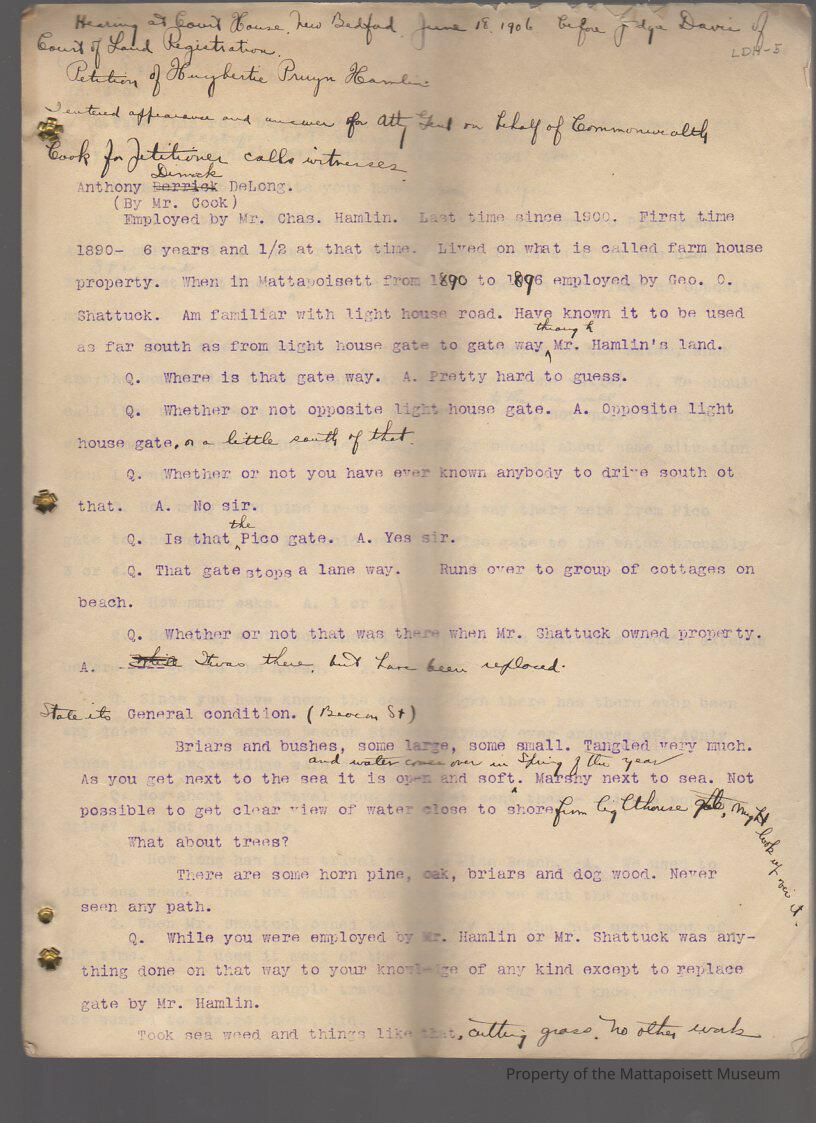 Hearing at Court House, New Bedford, June 18, 1906 before Judge Davis of
LDH-5
Court of Land Registration.
Petition of Huybertie Pruyn Hamlin
I entered appearance and answer for Atty Genl on behalf of Commonwealth
Cook for Petitioner calls witnesses
Dimick
Anthony Derrick DeLong.
(By Mr. Cook)
Employed by Mr. Chas. Hamlin. Last time since 1900. First time
1890- 6 years and 1/2 at that time. Lived on what is called farm house
property. When in Mattapoisett from 1890 to 1896 employed by Geo. O.
Shattuck. Am familiar with light house road. Have known it to be used
through
as far south as from light house gate to gate way Mr. Hamlin's land.
Q. Where is that gate way. A. Pretty hard to guess.
Q. Whether or not opposite light house gate. A. Opposite light
house gate, or a little south of that.
Q. Whether or not you have ever known anybody to drive south ot
that. A. No sir.
the
Q. Is that Pico gate. A. Yes sir.
Q. That gate stops a lane way. Runs over to group of cottages on
beach.
Q. Whether or not that was there when Mr. Shattuck owned property.
A. It was there, but have been replaced.
State its General condition. (Beacon St)
Briars and bushes, some large, some small. Tangled very much.
and water comes over in Spring of the year
As you get next to the sea it is open and soft. Marshy next to sea. Not
possible to get clear view of water close to shore from lighthouse gate, might look up over it.
What about trees?
There are some horn pine, oak, briars and dog wood. Never
seen any path.
Q. While you were employed by Mr. Hamlin or Mr. Shattuck was any-
thing done on that way to your knowledge of any kind except to replace
gate by Mr. Hamlin.
Took sea weed and things like that, cutting grass. No other work
Property of the Mattapoisett Museum